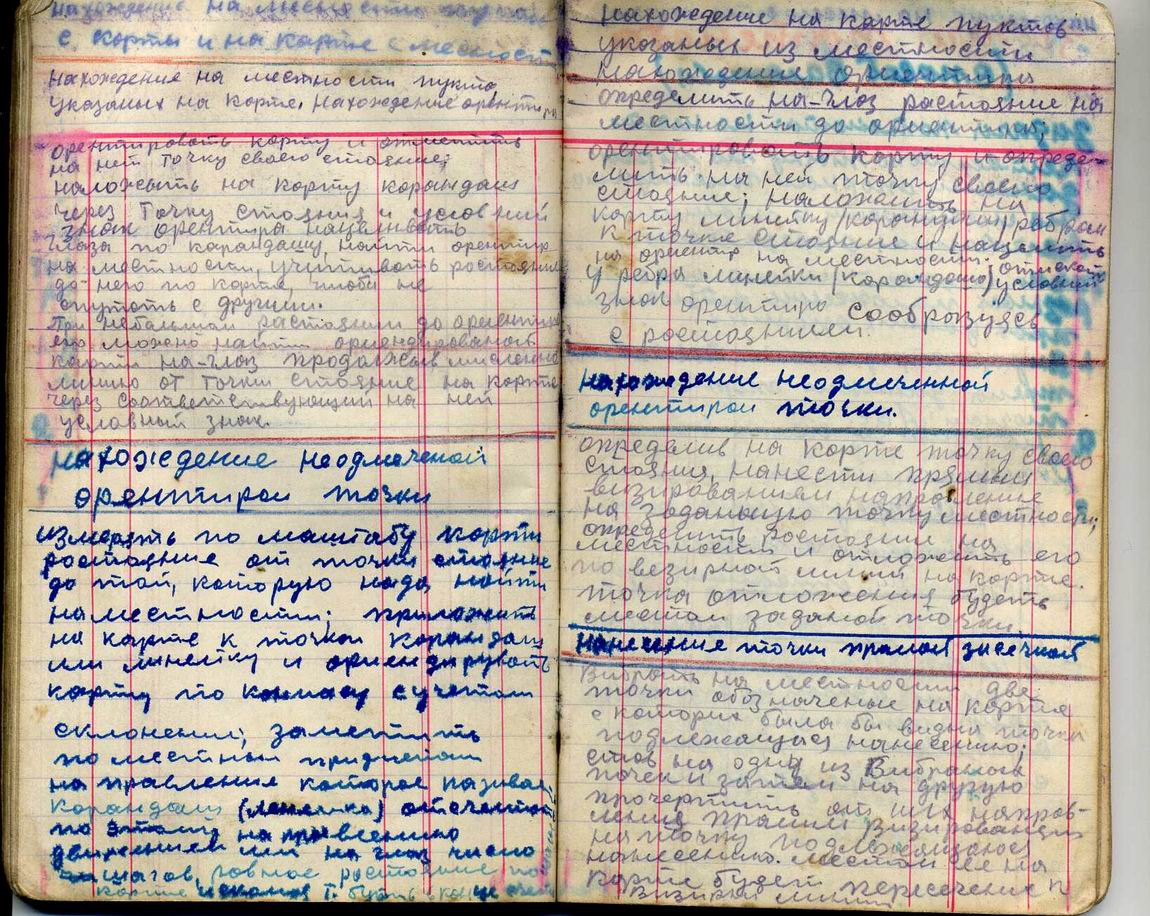 нахождение на местности
с карты и на карте с местност
нахождение на местности пункта
указаных на карте, нахождение орентира
орентировать карту и отметить
на ней точку своего стояние;
наложыть на карту карандаш
через точку стояния и условний
знак орентира нацеливать
глаза по карандашу, найти орентир
на местности, учитивать растояние
до него по карте, чтоби не
спутать с другим.
При небальшом растоянии до орентира
его можно найти ориендированой
карти на-глаз продолжыв мисленно
линию от точки стояние на карте
через соответствующий на ней
условный знак.
нахождение неодмеченой
орентиром точки
измерять по маштабу карти
ростояние от точки стояние
до той, которую надо найти
на местности; приложить
на карте к точкам карандаш
или линейку и ориендирувать
карту по компасу с учетом
склонении; заметить
по местным придметам
на правление которое называе
карандаш (линейка) отсчетать
по этому направлению
движением или на глаз число
шагов, ровное ростояние по
нахождение на карте пунктов
указаных из местности
нахождения ориентира
определить на-глаз растояние на
местности до ориентира;
орентировать карту и опреде-
лить на ней точку своего
стояние; наложить на
карту линейку (карандаш) ребром
к точке стояние и нацелить
на ориентир на местности. отискать
у ребра линейки (карандаша) условний
знак орентира сообразуясь
с ростоянием.
нахождение неодмеченной
орентиром точки.
определив на карте точку своего
стояния, нанести прямим
визированием напровление
на заданую точку местности;
определить ростоянии на
местности и отложить его
по везирной линии на карте.
точка отложения будеть
местом заданой точки.
нанесение точки прямой засечкой
Вибрать на местности две
точки обозначеные на карте
с которих была бы видна точка
подлежащая нанесению;
став на одну из Вибраных
точек и затем на другую
прочертить от них напров-
ления прямим визированием
на точку подлежащою
нанесению. местом ее на
карте будет пересечение
визирных линий